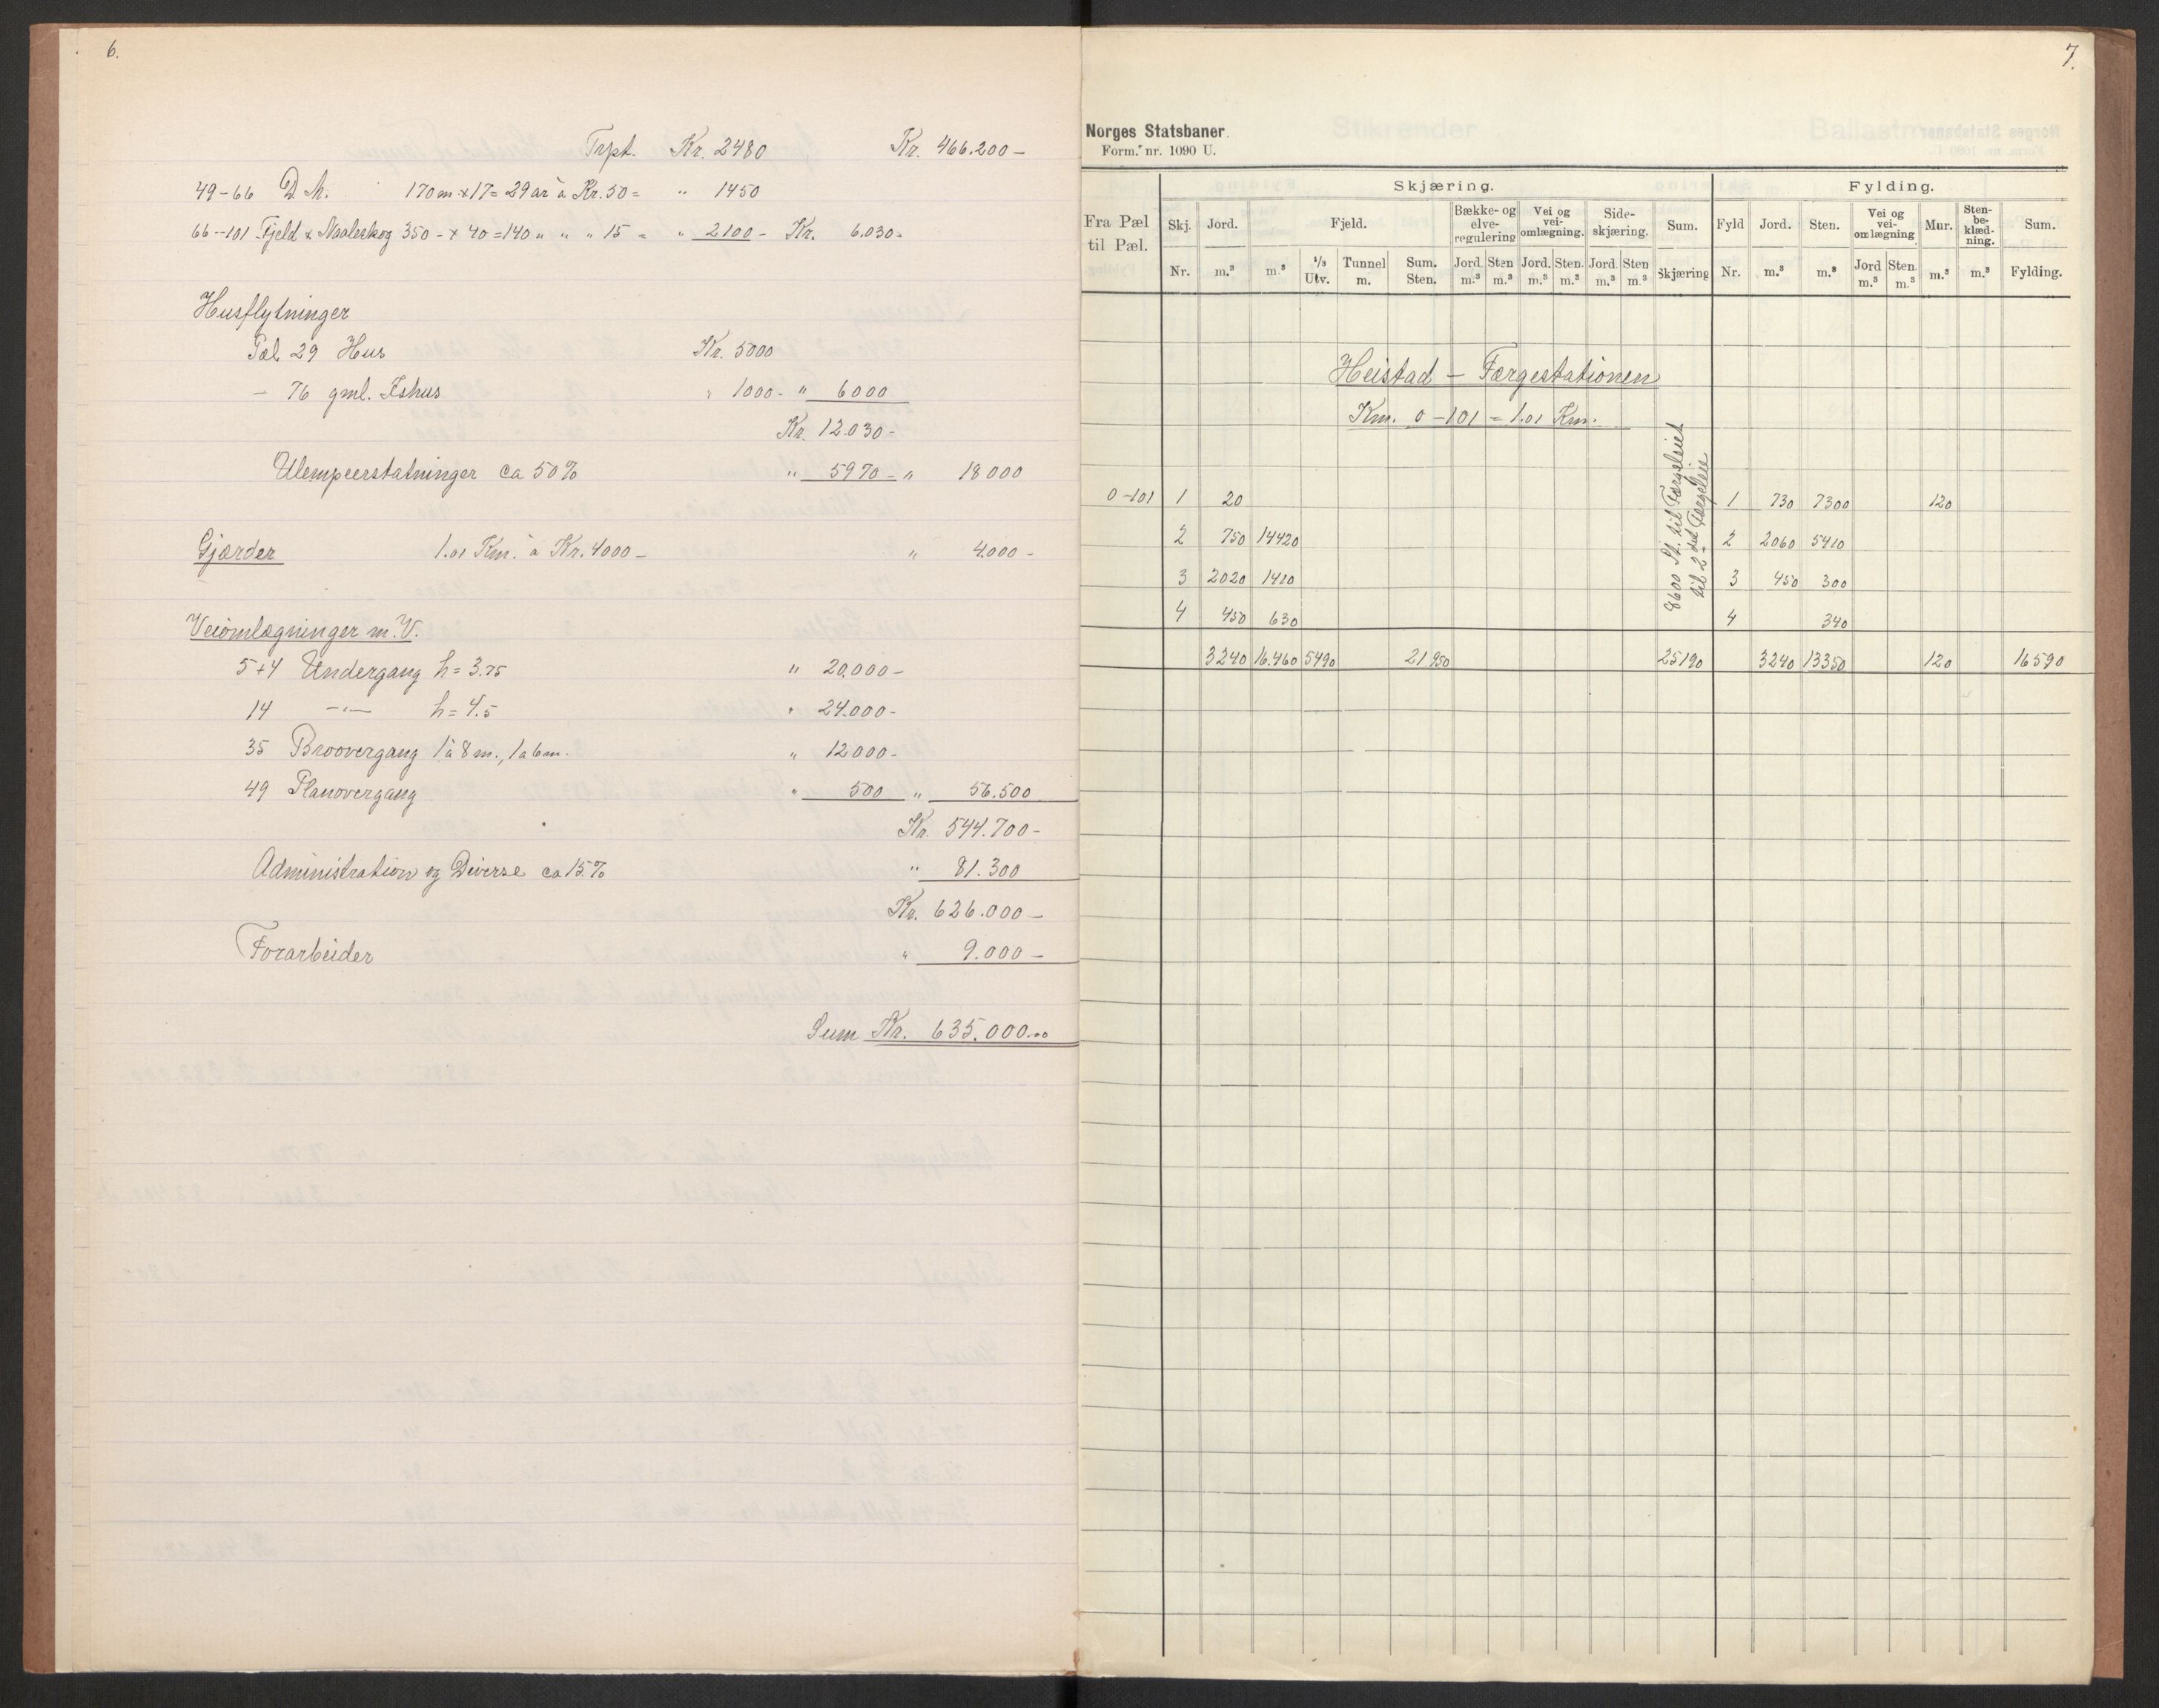 6.
Trpt. Kr. 2480 Kr. 466.200 –
49–66 D. M. 170 m × 17 = 29 ar à Kr. 50 = " 1450
66–101 Fjeld & Naaleskog 350 – × 40 = 140 " " " 15 = " 2100 – Kr. 6.030 –
Husflytninger
Pæl 29 Hus Kr. 5000
– 76 gml. Ishus " 1000 – " 6000
Kr. 12.030 –
Ulempeerstatninger ca 50% " 5970 – " 18000
Gjærder 1.01 Km. à Kr. 4000 – " 4.000 –
Veiomlægninger m. V.
5+4 Undergang h = 3.75 " 20.000 –
14 –"– h = 4.5 " 24.000 –
35 Broovergang 1 à 8 m., 1 a 6 m. " 12.000 –
49 Planovergang " 500 " 56.500
Kr. 544.700 –
Administration og Diverse ca 15% " 81.300
Kr. 626.000 –
Forarbeider " 9.000 –
Sum Kr. 635.000.00
7.
Norges Statsbaner.
Form. nr. 1090 U.
Skjæring. Fylding.
Fra Pæl til Pæl. Skj. Jord. Fjeld. Bække- og elve-regulering Vei og vei-omlægning. Side-skjæring. Sum. Fyld Jord. Sten. Vei og vei-omlægning Mur. Sten-be-klæd-ning. Sum.
Nr. m.³ m.³ ⅓ Utv. Tunnel m. Sum. Sten. Jord. m.³ Sten m.³ Jord. m.³ Sten. m.³ Jord. m.³ Sten m.³ Skjæring Nr. m.³ m.³ Jord m.³ Sten. m.³ m.³ m.³ Fylding.
Heistad – Færgestationen
Km. 0–101 = 1.01 Km.
8600 St. til Færgeleiet
til 2det Færgeleie
0–101 1 20 1 730 7300 120
2 750 14420 2 2060 5410
3 2020 1410 3 450 300
4 450 630 4 340
3240 16.460 5490 21950 25190 3240 13350 120 16590